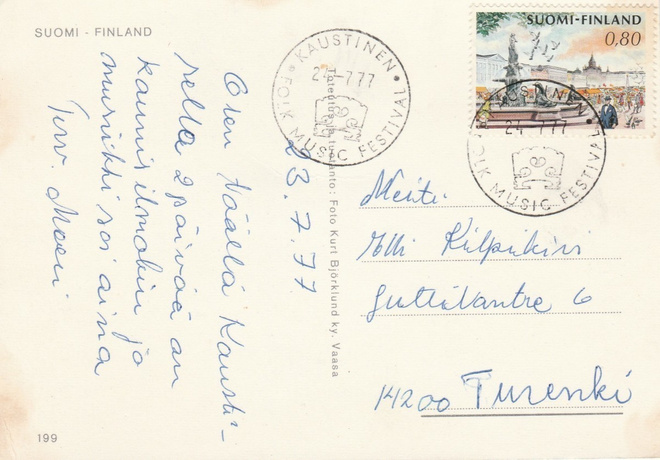 SUOMI - FINLAND
199
23.7.77
Olen täällä Kausti-
sella 2 päivää on
kaunis ilmakin ja
musiikki soi aina
Terv. Moeri
Toteutus ja tuotanto: Foto Kurt Björklund ky. Vaasa
KAUSTINEN
24-7.77
FOLK MUSIC FESTIVAL
SUOMI-FINLAND
0,80
KAUSTINEN
24-7.77
FOLK MUSIC FESTIVAL
Neiti
Elli Kilpikivi
6
14200 Turenki